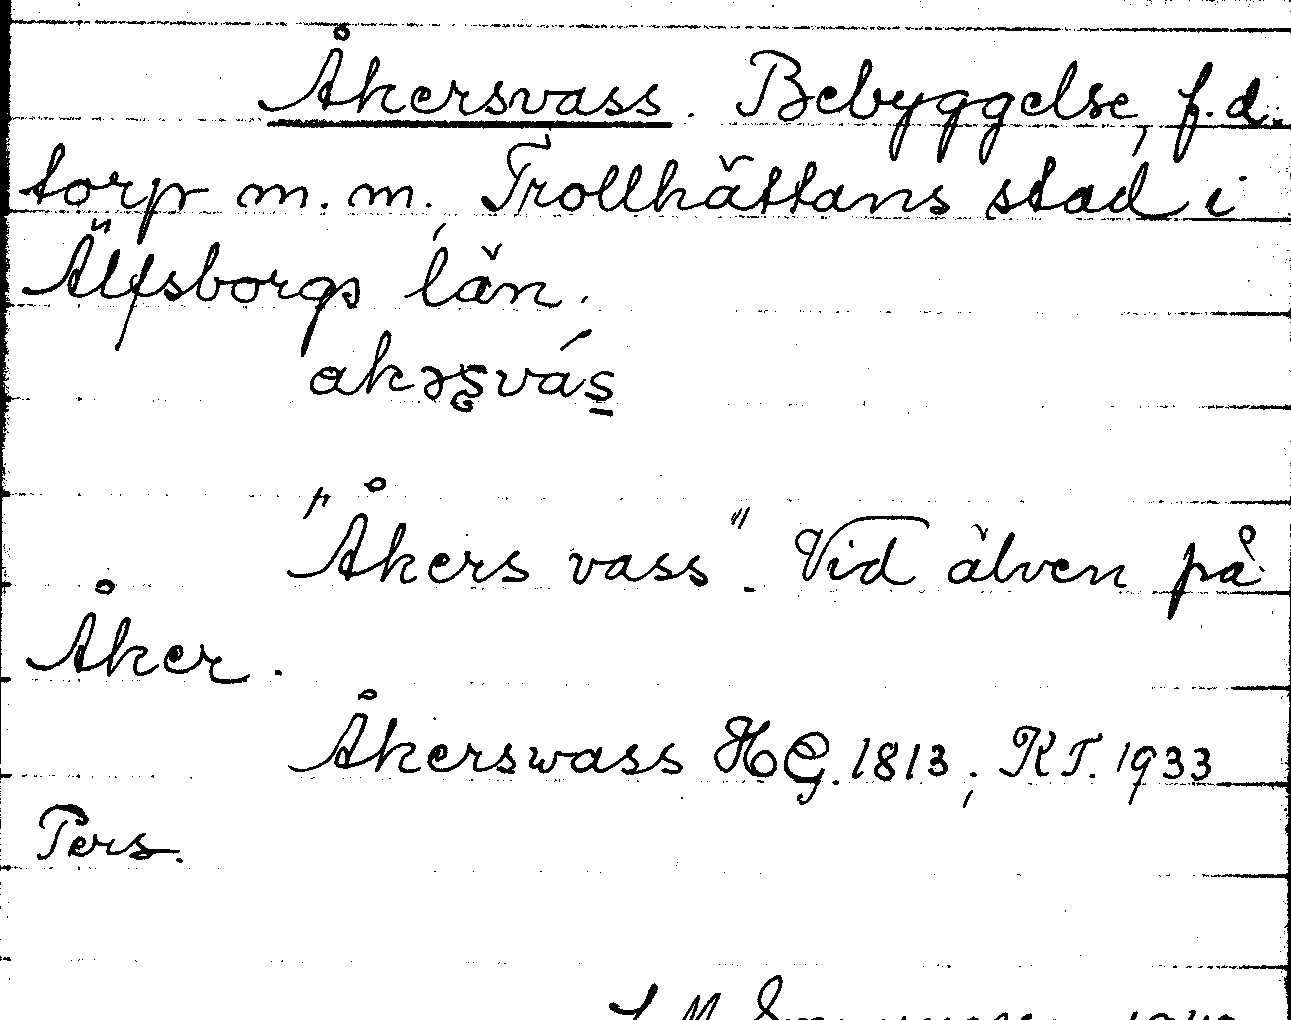 Åkersvass. Bebyggelse, f.d.
torp m.m., Trollhättans stad i
Älfsborgs län.
akəʂvás̠
"Åkers vass". Vid älven på
Åker.
Åkerswass HG. 1813; KT. 1933
Pers.